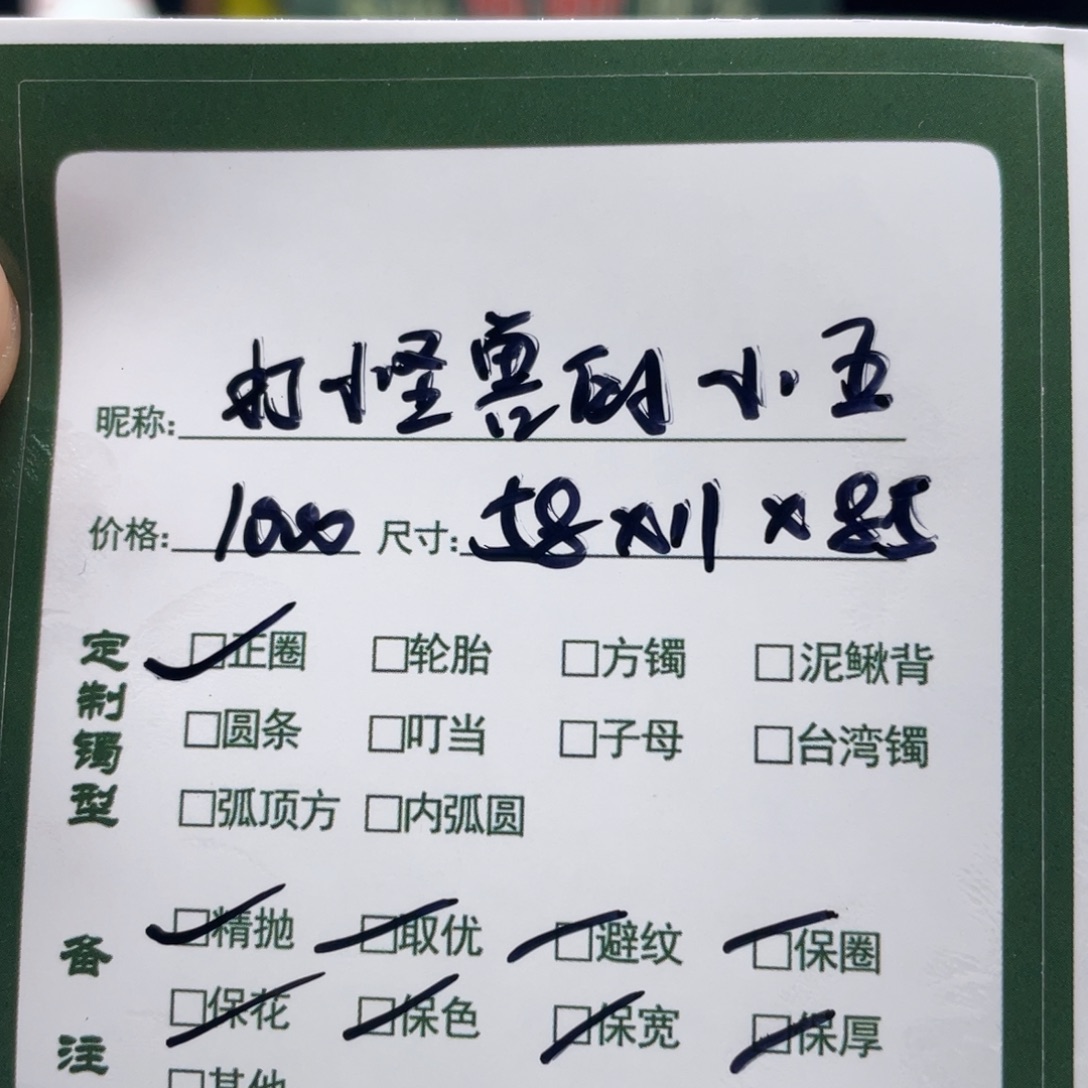 昵称:打怪兽的小五
价格:1000 尺寸:58×11×85
定制镯型
☑正圈 □轮胎 □方镯 □泥鳅背
□圆条 □叮当 □子母 □台湾镯
□弧顶方 □内弧圆
备注
☑精抛 ☑取优 ☑避纹 ☑保圈
☑保花 ☑保色 ☑保宽 ☑保厚
□其他